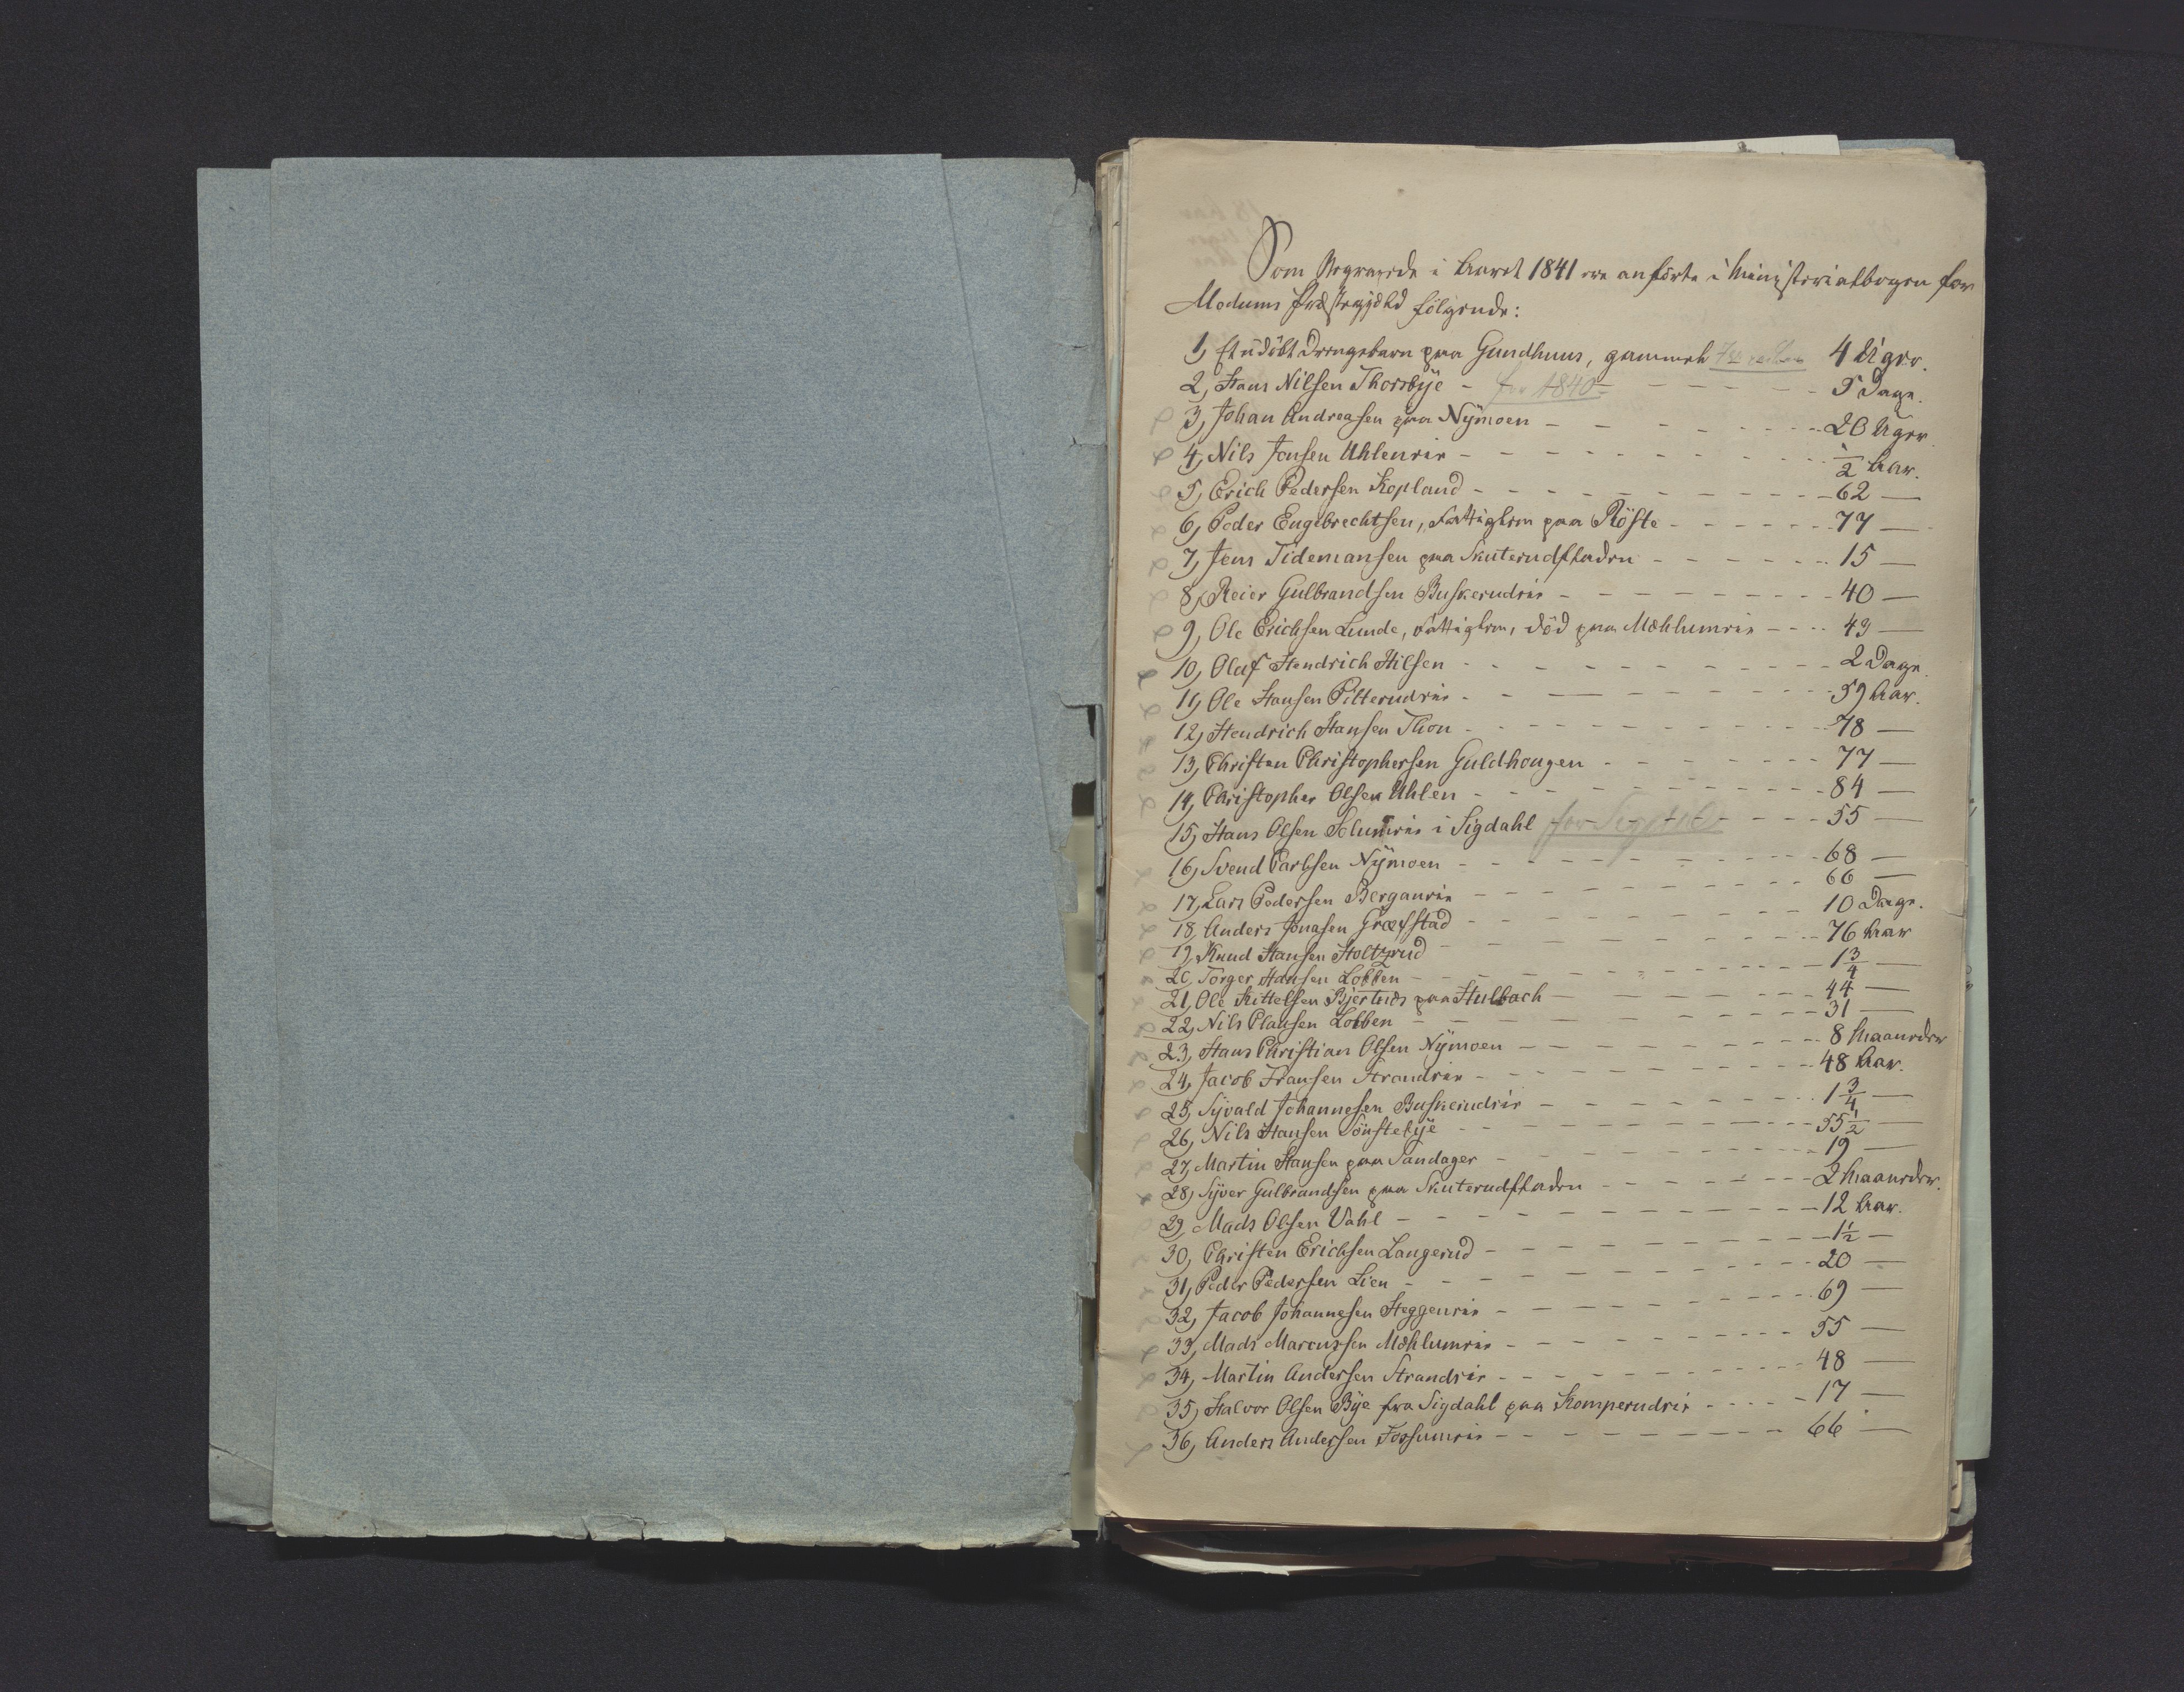 Som Begravede i Aaret 1841 ere anførte i Ministerialbogen for
Modums Præstegjeld følgende:
1, Et udøbt Drengebarn paa Gundhuus, gammelt 4 Uger.
2, Hans Nilsen Thorsbÿe - for 1840 - 5 Dage.
3, Johan Andreasen paa Nÿmoen - 20 Uger
4, Nils Jensen Uhleneie - 1/2 Aar.
5, Erich Pedersen Kopland - 62 —
6, Peder Engebrechtsen, Fattiglem paa Röste - 77 —
7, Jens Tidemansen paa Skuterudfladen - 15 —
8, Reier Gulbrandsen Buskerudeie - 40 —
9, Ole Erichsen Lunde, Fattiglem, död paa Mæhlumeie - 49 —
10, Oluf Hendrich Nilsen - 2 Dage.
11, Ole Hansen Pitterudeie - 59 Aar.
12, Hendrich Hansen Thon - 78 —
13, Christen Christophersen Guldhougen - 77 —
14, Christopher Olsen Uhlen - 84 —
15, Hans Olsen Solumeie i Sigdahl for Sigdal - 55 —
16, Svend Carlsen Nÿmoen - 68 —
17, Lars Pedersen Berganeie - 66 —
18, Anders Jonasen Græfstad - 10 Dage.
19, Knud Hansen Holtzrud - 76 Aar
20, Torger Hansen Lobben - 1 3/4 —
21, Ole Kittelsen Bjertnæs paa Hulbach - 44 —
22, Nils Clausen Lobben - 31 —
23, Hans Christian Olsen Nÿmoen - 8 Maaneder
24, Jacob Fransen Strandeie - 48 Aar.
25, Sÿvald Johannesen Buskerudeie - 1 3/4 —
26, Nils Hansen Sönstebÿe - 55 1/2 —
27, Martin Hansen paa Sandager - 19 —
28, Sÿver Gulbrandsen paa Skuterudfladen - 2 Maaneder.
29, Mads Olsen Vahl - 12 Aar.
30, Christen Erichsen Langerud - 1 1/2 —
31, Peder Pedersen Lien - 20 —
32, Jacob Johannesen Heggeneie - 69 —
33, Mads Marcussen Mæhlumeie - 55 —
34, Martin Andersen Strandeie - 48 —
35, Halvor Olsen Bÿe fra Sigdahl paa Komperudeie - 17 —
36, Anders Andersen Fossumeie - 66 —